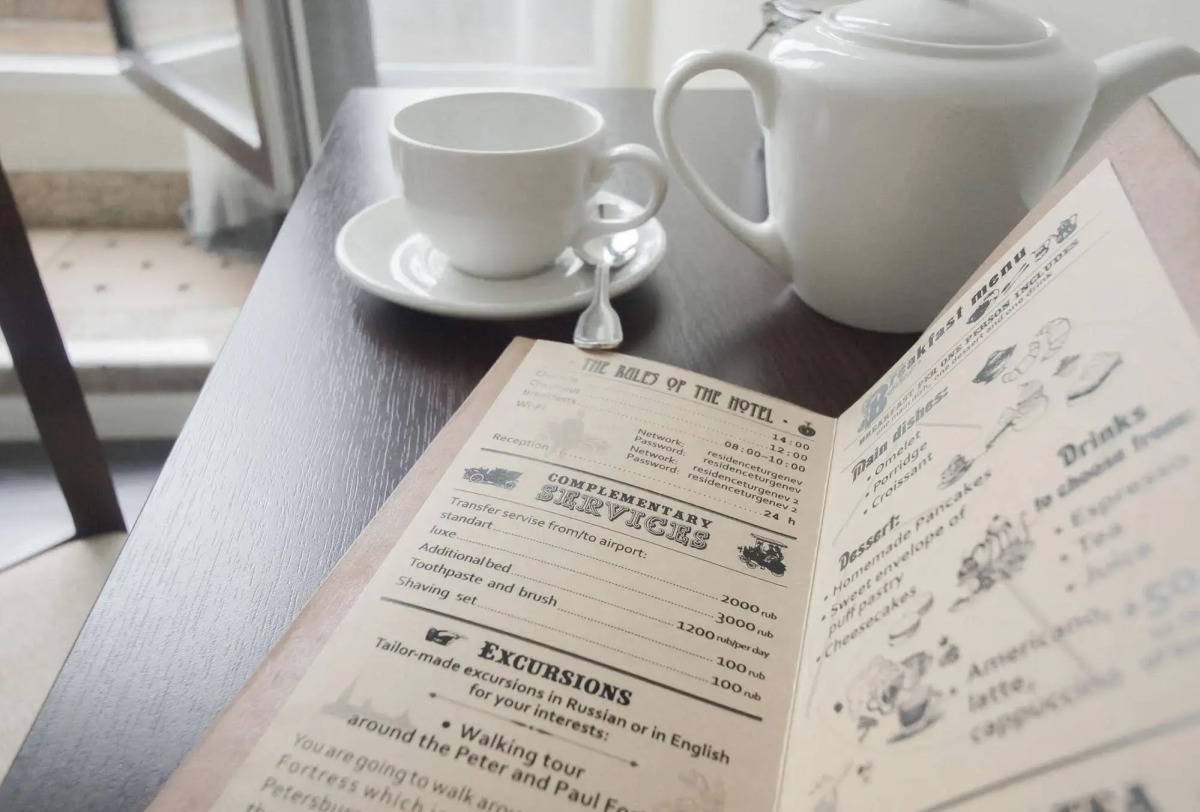 THE RULES OF THE HOTEL
Check-in 14:00
Check-out 12:00
Breakfasts 08:00–10:00
Wi-Fi Network: residenceturgenev
Password: residenceturgenev
Network: residenceturgenev 2
Password: residenceturgenev 2
Reception 24 h
COMPLEMENTARY
SERVICES
Transfer servise from/to airport:
standart 2000 rub
luxe 3000 rub
Additional bed 1200 rub/per day
Toothpaste and brush 100 rub
Shaving set 100 rub
EXCURSIONS
Tailor-made excursions in Russian or in English
for your interests:
• Walking tour
around the Peter and Paul
You are going to walk
Fortress which
Breakfast menu
BREAKFAST PER ONE PERSON INCLUDES
one main dish, one dessert and one drink
Main dishes:
• Omelet
• Porridge
• Croissant
Dessert:
• Homemade Pancakes
• Sweet envelope of
puff pastry
• Cheesecakes
Drinks
to choose from
• Espresso
• Tea
• Americano,
latte,
cappuccino